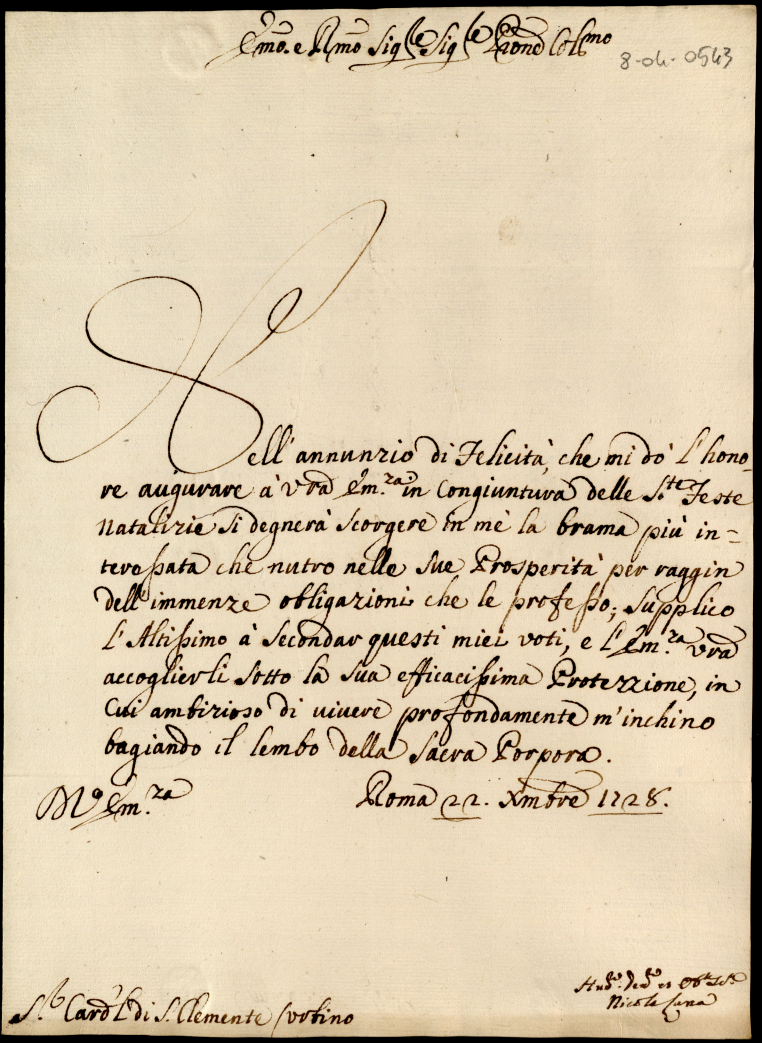 Emo. e Rmo Sigre Sigre Prone Colmo
8-04-0543
Nell'annunzio di Felicità, che mi dò l'hono-
re augurare à Vra Em.za in congiuntura delle S.te Feste
Natalizie si degnerà scorgere in mè la brama più in-
teressata che nutro nelle sue Prosperità per raggin
dell'immenze obligazioni che le professo; supplico
l'Altissimo à secondar questi miei voti, e l'Em.za Vra
accoglierli sotto la sua efficacissima Protezzione, in
cui ambizioso di vivere profondamente m'inchino
bagiando il lembo della Sacra Porpora.
Em.za Roma 22. Xmbre 1728.
Hu.mo Dev.mo et Ob.
Nicola
S.r Card.l di S. Clemente